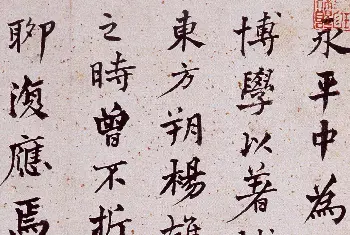 永平中為
博學以著
東方朔楊雄
之時曾不折
聊復應焉